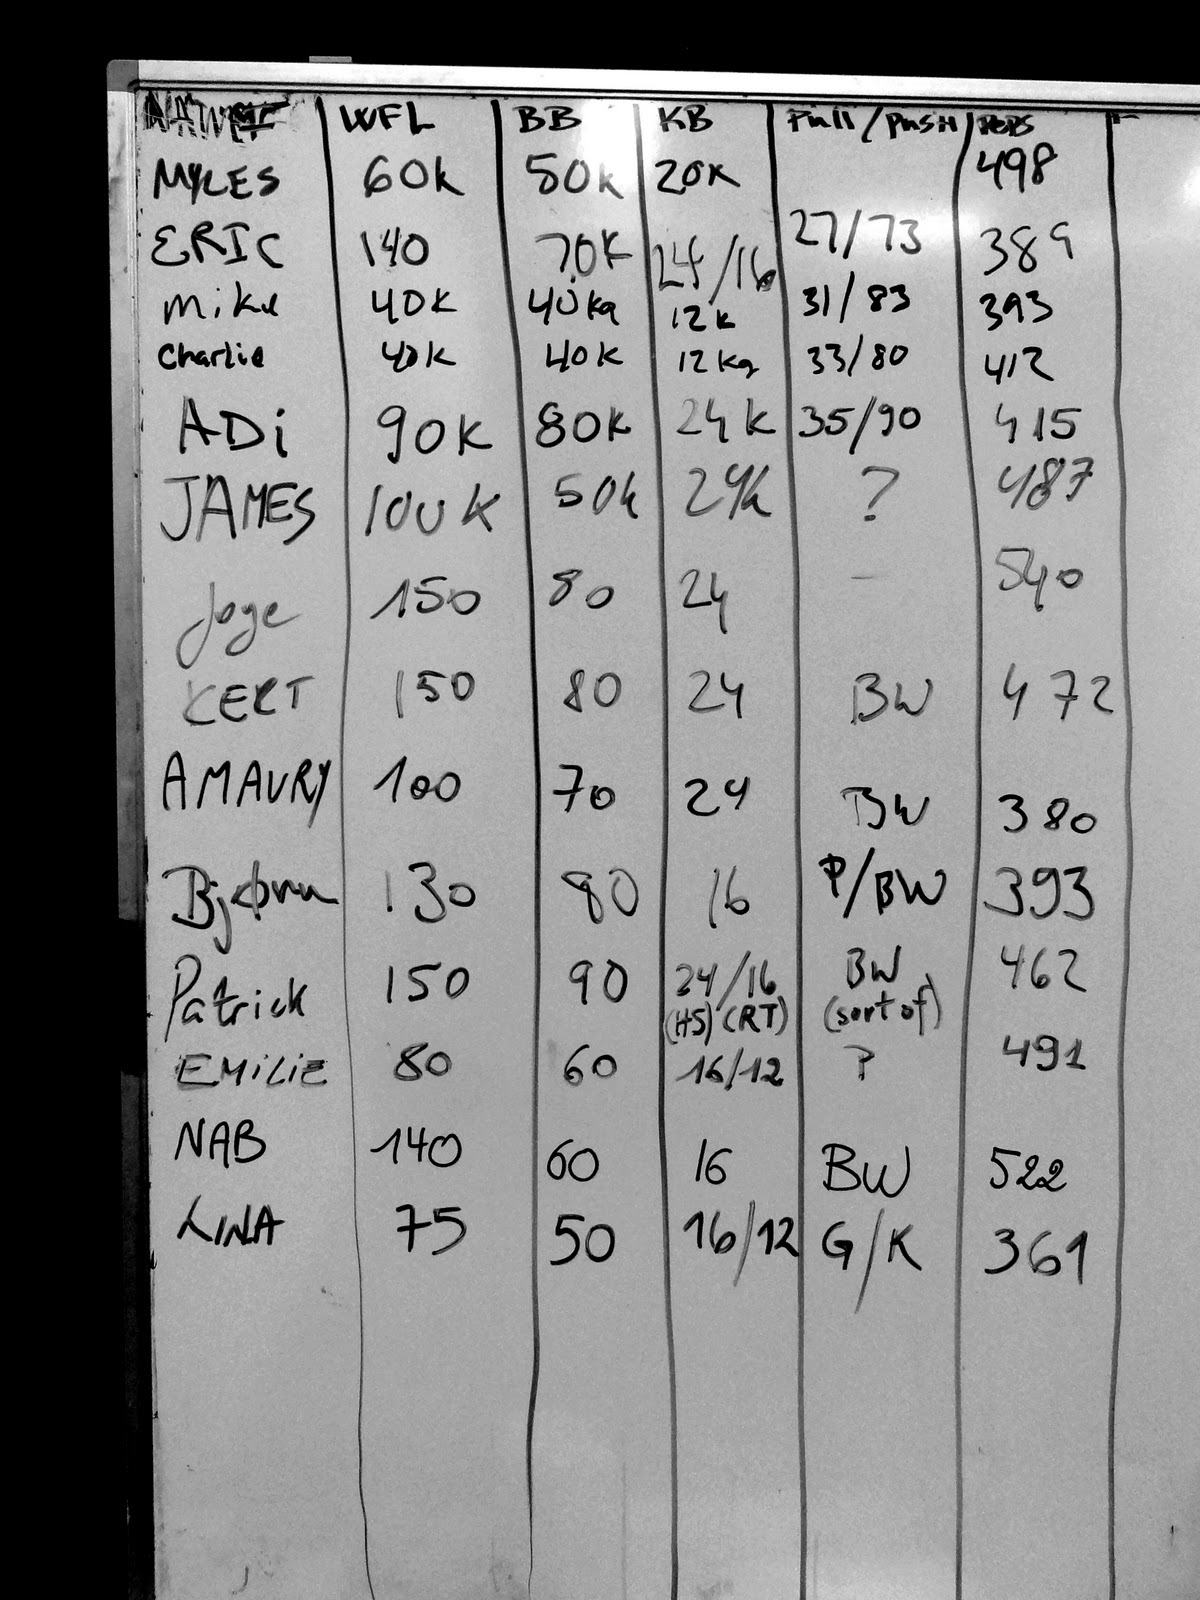 NAME WFL BB KB Pull/push REPS
MYLES 60k 50k 20k 498
ERIC 140 70K 24/16 27/73 389
Mike 40K 40kg 12k 31/83 393
Charlie 40K 40K 12Kg 33/80 412
ADi 90K 80K 24K 35/90 415
JAMES 100K 50k 24k ? 487
Joge 150 80 24 - 540
KERT 150 80 24 BW 472
AMAURY 100 70 24 BW 380
Bjørnn 130 80 16 P/BW 393
Patrick 150 90 24/16 BW 462
(HS) (RT) (sort of)
EMILIE 80 60 16/12 ? 491
NAB 140 60 16 BW 522
LINA 75 50 16/12 G/K 361